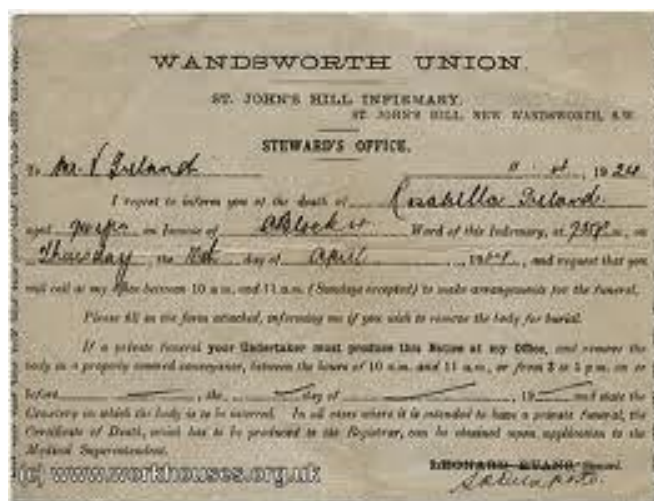 WANDSWORTH UNION.
ST. JOHN'S HILL INFIRMARY,
ST. JOHN'S HILL, NEW WANDSWORTH, S.W.
STEWARD'S OFFICE,
To Mr Ireland 19 24
I regret to inform you of the death of Ireland
aged an Inmate of A Block Ward of this Infirmary, at m., on
Thursday, the day of April, 19, and request that you
will call at my Office between 10 a.m. and 11 a.m. (Sundays excepted) to make arrangements for the funeral.
Please fill in the form attached, informing me if you wish to remove the body for burial.
If a private funeral your Undertaker must produce this Notice at my Office, and remove the
body in a properly covered conveyance, between the hours of 10 a.m. and 11 a.m., or from 2 to 5 p.m. on or
before , the day of , 19 and state the
Cemetery in which the body is to be interred. In all cases where it is intended to have a private funeral, the
Certificate of Death, which has to be produced to the Registrar, can be obtained upon application to the
Medical Superintendent.
LEONARD EVANS, Steward.
(c) www.workhouses.org.uk